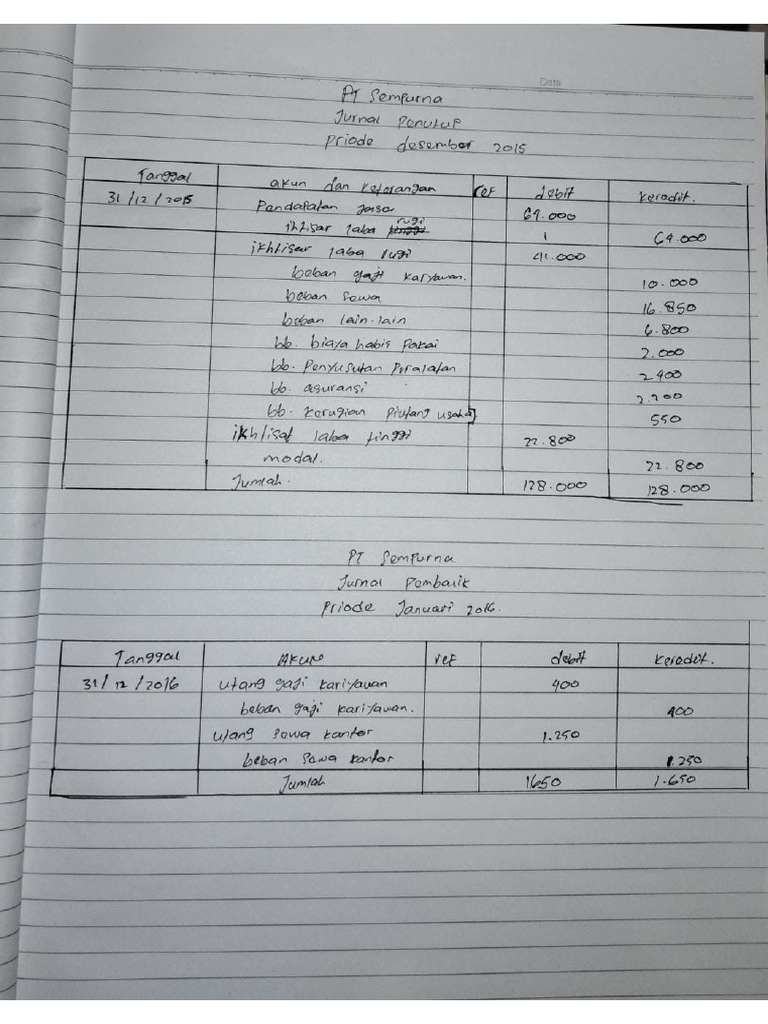 Date
PT Sempurna
Jurnal Penutup
Priode desember 2015
Tanggal akun dan keterangan ref debit keradit.
31/12/2015 Pendapatan jasa 64.000
ikhlisar laba rugi 64.000
ikhlisar laba rugi 41.000
beban gaji karyawan. 10.000
beban sewa 16.850
beban lain-lain 6.800
bb. biaya habis pakai 2.000
bb. Penyusutan Peralatan 2.400
bb. asuransi 2.200
bb. kerugian piutang usaha 550
ikhlisaf laba tinggi 22.800
modal. 22.800
Jumlah. 128.000 128.000
PT Sempurna
Jurnal Pembalik
Priode Januari 2016.
Tanggal AKUN ref debit keradit.
31/12/2016 utang gaji kariyawan 400
beban gaji kariyawan. 400
utang sewa kantor 1.250
beban sewa kantor 1.250
Jumlah 1650 1.650